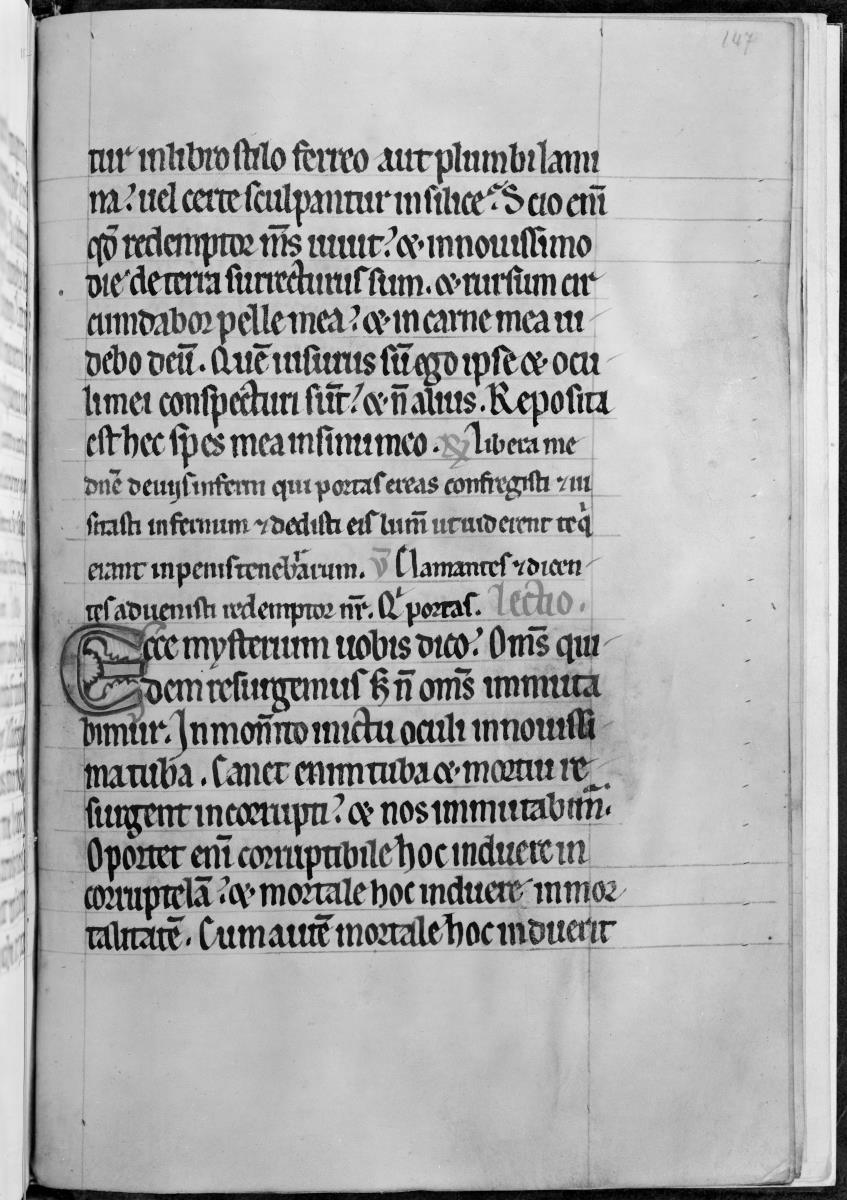 147
tur in libro stilo ferreo aut plumbi lami
na? uel certe sculpantur in silice? Scio eni̅
qd̅ redemptor m̅s uiuit? & in nouissimo
die de terra surrecturus sum. & rursum cir
cumdabor pelle mea? & in carne mea ui
debo deu̅. Que̅ uisurus su̅ ego ipse & ocu
li mei conspecturi su̅t? & n̅ alius. Reposita
est hec spes mea in sinu meo. ℟ Libera me
dn̅e de uijs inferni qui portas ereas confregisti ⁊ ui
sitasti infernum ⁊ dedisti eis lum̅ ut uiderent te q̍
erant in penis tenebraꝛum. ℣ Clamantes ⁊ dicen
tes aduenisti redemptor nr̅. Qͥ portas. lectio.
Ecce mysterium uobis dico? Om̅s qui
dem resurgemus s; n̅ om̅s immuta
bimur. In mom̅to in ictu oculi in nouissi
ma tuba. Canet enim tuba & mortui re
surgent incorrupti? & nos immutabim̅.
Oportet eni̅ corruptibile hoc induere in
corruptela̅? & mortale hoc induere inmor
talitate̅. Cum aute̅ mortale hoc induerit